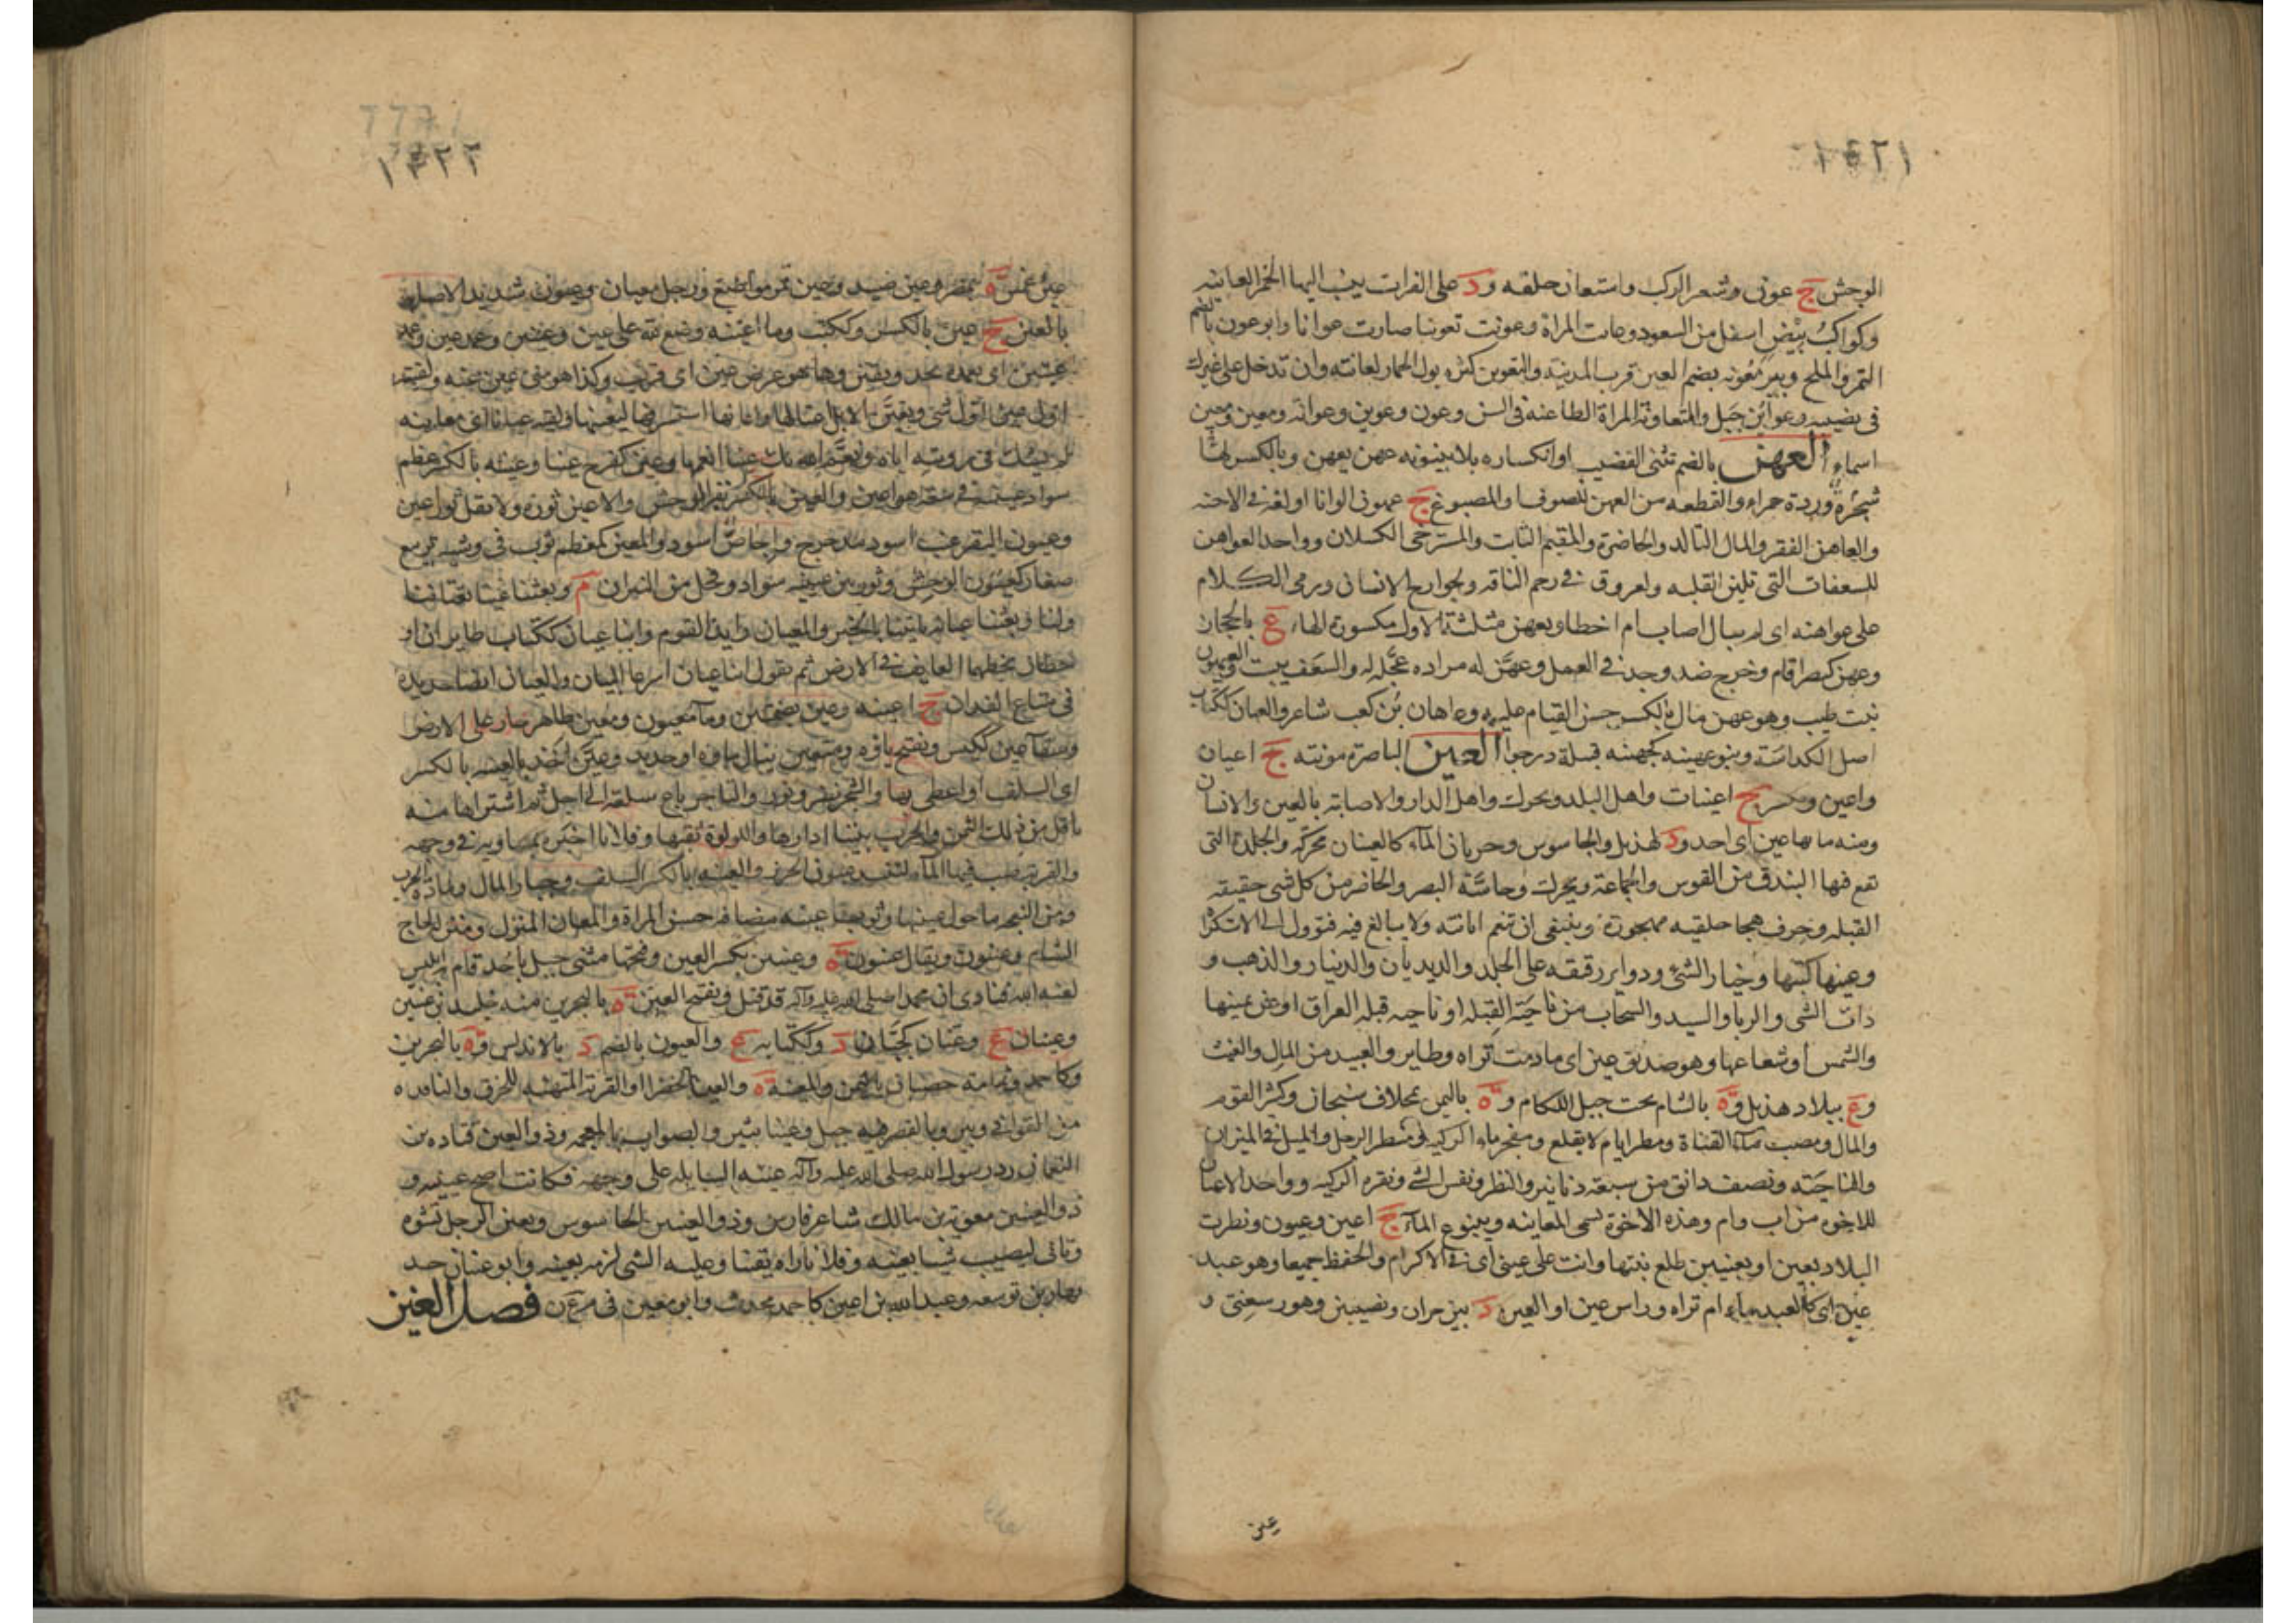 ١٤٢١
الوحش ج عون وشعر الركب واستعان حلقه و د على الفرات ينسب اليها الخمر العانيه
وكواكب بيض اسفل من السعود وعانت المراة وعونت تعوينا صارت عوانا وابو عون بالضم
التمر والملح وبير معونه بضم العين قرب المدينة والتعوين كثره بول الحمار لعانته وان تدخل على غيرك
في نصيبه وعوائن جبل والمتعاونة المراة الطاعنة في السن وعون وعوين وعوانه ومعين ومعين
اسماء العهن بالضم تثني القضيب او انكساره بلا بينونه عهن يعهن وبالكسر لها
شجرة وردة حمراء والقطعه من العهن للصوف والمصبوغ ج عهون الوانا او لغة في الاحنه
والعاهن الفقير والمال التالد والحاضرة والمقيم الثابت والمسترخي الكسلان وواحد العواهن
للسعفات التي تلين القلبه ولعروق في رحم الناقه ولجوارح الانسان ورمى الكلام
على عواهنه اى لم يبال اصاب ام اخطا وبعهن مثلثة الاول مكسورة الهاء ع بالحجاز
وعهن كنصر اقام وخرج ضد وجد في العمل وعهن له مراده عجله له والسعف يبست والعيهون
نبت طيب وهو عهن مال بالكسر حسن القيام عليه وعاهان بن كعب شاعر والعهان ككتاب
اصل الكباسة وبنو عهينه كجهينه قبيلة درجوا العين الباصرة مونثه ج اعيان
واعين و جج اعينات واهل البلد ويحرك واهل الدار والاصابة بالعين والانسان
ومنه ما بها عين اى احد و د لهذيل والجاسوس وجريان الماء كالعينان محركة والجلدة التى
تقع فيها البندق من القوس والجماعة ويحرك وحاسة البصر والحاضر من كل شى وحقيقه
القبله وحرف هجا حلقيه مجهورة وينبغى ان تنعم ابانته ولا يبالغ فيه فتوول الى الاستكراه
وعينها كتبها وخيار الشئ ودواير رقيقه على الجلد والديدبان والدينار والذهب و
ذات الشى والربا والسيد والسحاب من ناحية القبله او ناحيه قبله العراق او عن يمينها
والشمس او شعاعها وهو صديق عين اى مادمت تراه وطاير والعتيد من المال والعيب
و ع ببلاد هذيل و ة بالشام تحت جبل اللكام و ة باليمن بمخلاف سنحان وكثر القوم
والمال ومصب ماء القناة ومطر ايام لا يقلع ومفجر ماء الركيه ومنظر الرجل والميل في الميزان
والناحية ونصف دانق من سبعة دنانير والنظر ونفس الشئ ونقره الركيه وواحد الاعيان
للاخوه من اب وام وهذه الاخوة تسمى المعاينه وينبوع الماء ج اعين وعيون ونظرت
البلاد بعين او بعينين طلع نبتها وانت على عينى اى في الاكرام والحفظ جميعا وهو عبد
عين اى كالعبد ماء ام تراه وراس عين او العين د بين حران ونصيبين وهو رسعنى و
عين
١٤٢٢
عين شمس ة بمصر وعين صيد وعين تمر مواضع ورجل معيان وعيون شديد الاصابه
بالعين ج عين بالكسر وككتب وما اعينه وصنع ذلك على عين وعينين وعمد عين وعمد
عينين اى تعمده بجد ويقين وها هو عرض عين اى قريب وكذا هو منى عين عنه ولقيته
اول عين اول شى وتعين الابل واعتانها واعانها استشرفها ليعينها ولقيه عيانا اى معاينه
لم يشك في رويته اياه ونعم الله بك عينا انعمها وعين كفرح عينا وعينه بالكسر عظم
سواد عينه في سعة فهو اعين والعين بالكسر بقر الوحش والاعين ثوره ولا تقل ثور اعين
وعيون البقر عنب اسود مدحرج واجاص اسود والمعين كمعظم ثوب في وشيه ترابيع
صغار كعيون الوحش وثور بين عينيه سواد وفحل من الثيران م وبعثنا عينا يعتاننا
ولنا وبعثنا عيانا ياتينا بالخبر والمعتان رايد القوم وابنا عيان ككتاب طايران او
خطان يخطهما العايف في الارض ثم يقول ابنا عيان اسرعا البيان والعيان ايضا حديدة
في متاع الفدان ج اعينه وعين بضمتين وماء معيون ومعين ظاهر جار على الارض
وسقاء عين ككيس وتفتح ياؤه ومتعين سال ماوه او جديد وعين اخذ بالعينه بالكسر
اى السلف او اعطى بها والشجر نضر ونور والتاجر باع سلعته الى اجل ثم اشتراها منه
باقل من ذلك الثمن والحرب بيننا ادارها واللولوة ثقبها وفلانا اخبره بمساويه في وجهه
والقربة صب فيها الماء لتنسد عيون الخرز والعينه بالكسر السلف وخيار المال ومادة الحرب
ومن النعجه ما حول عينها وثوب عينه مضافه حسن المراة والمعان المنزل ومنزل لحاج
الشام وعينون ويقال عينون ة وعينين بكسر العين وفتحها مثنى جبل باحد قام ابليس
لعنه الله فنادى ان محمدا صلى الله عليه وآله قد قتل وبفتح العين ة بالبحرين منه خليد عينين
وعينان ع وعيان كجبان د وككتابه ع والعيون بالضم د بالاندلس و ة بالبحرين
وكاحمد وثمامة حصنان باليمن والمعينة ة والعينا الخضرا والقربة المتهيئه للخرق والنافده
من القوافي وبير وبالقصر قنه جبل وعينا ثبير والصواب بالمعجمه وذو العين قتاده بن
النعمان رد رسول الله صلى الله عليه وآله عينه السايله على وجهه فكانت اصح عينيه و
ذو العينين معوية بن مالك شاعر فارس وذو العينين الجاسوس وتعين الرجل تشوه
وتانى ليصيب شيا بعينه وفلانا راه يقينا وعليه الشى لزمه بعينه وابو عينان جد
نهار بن توسعه وعبد الله بن اعين كاحمد محدث وابن معين في م ع ن فصل الغين